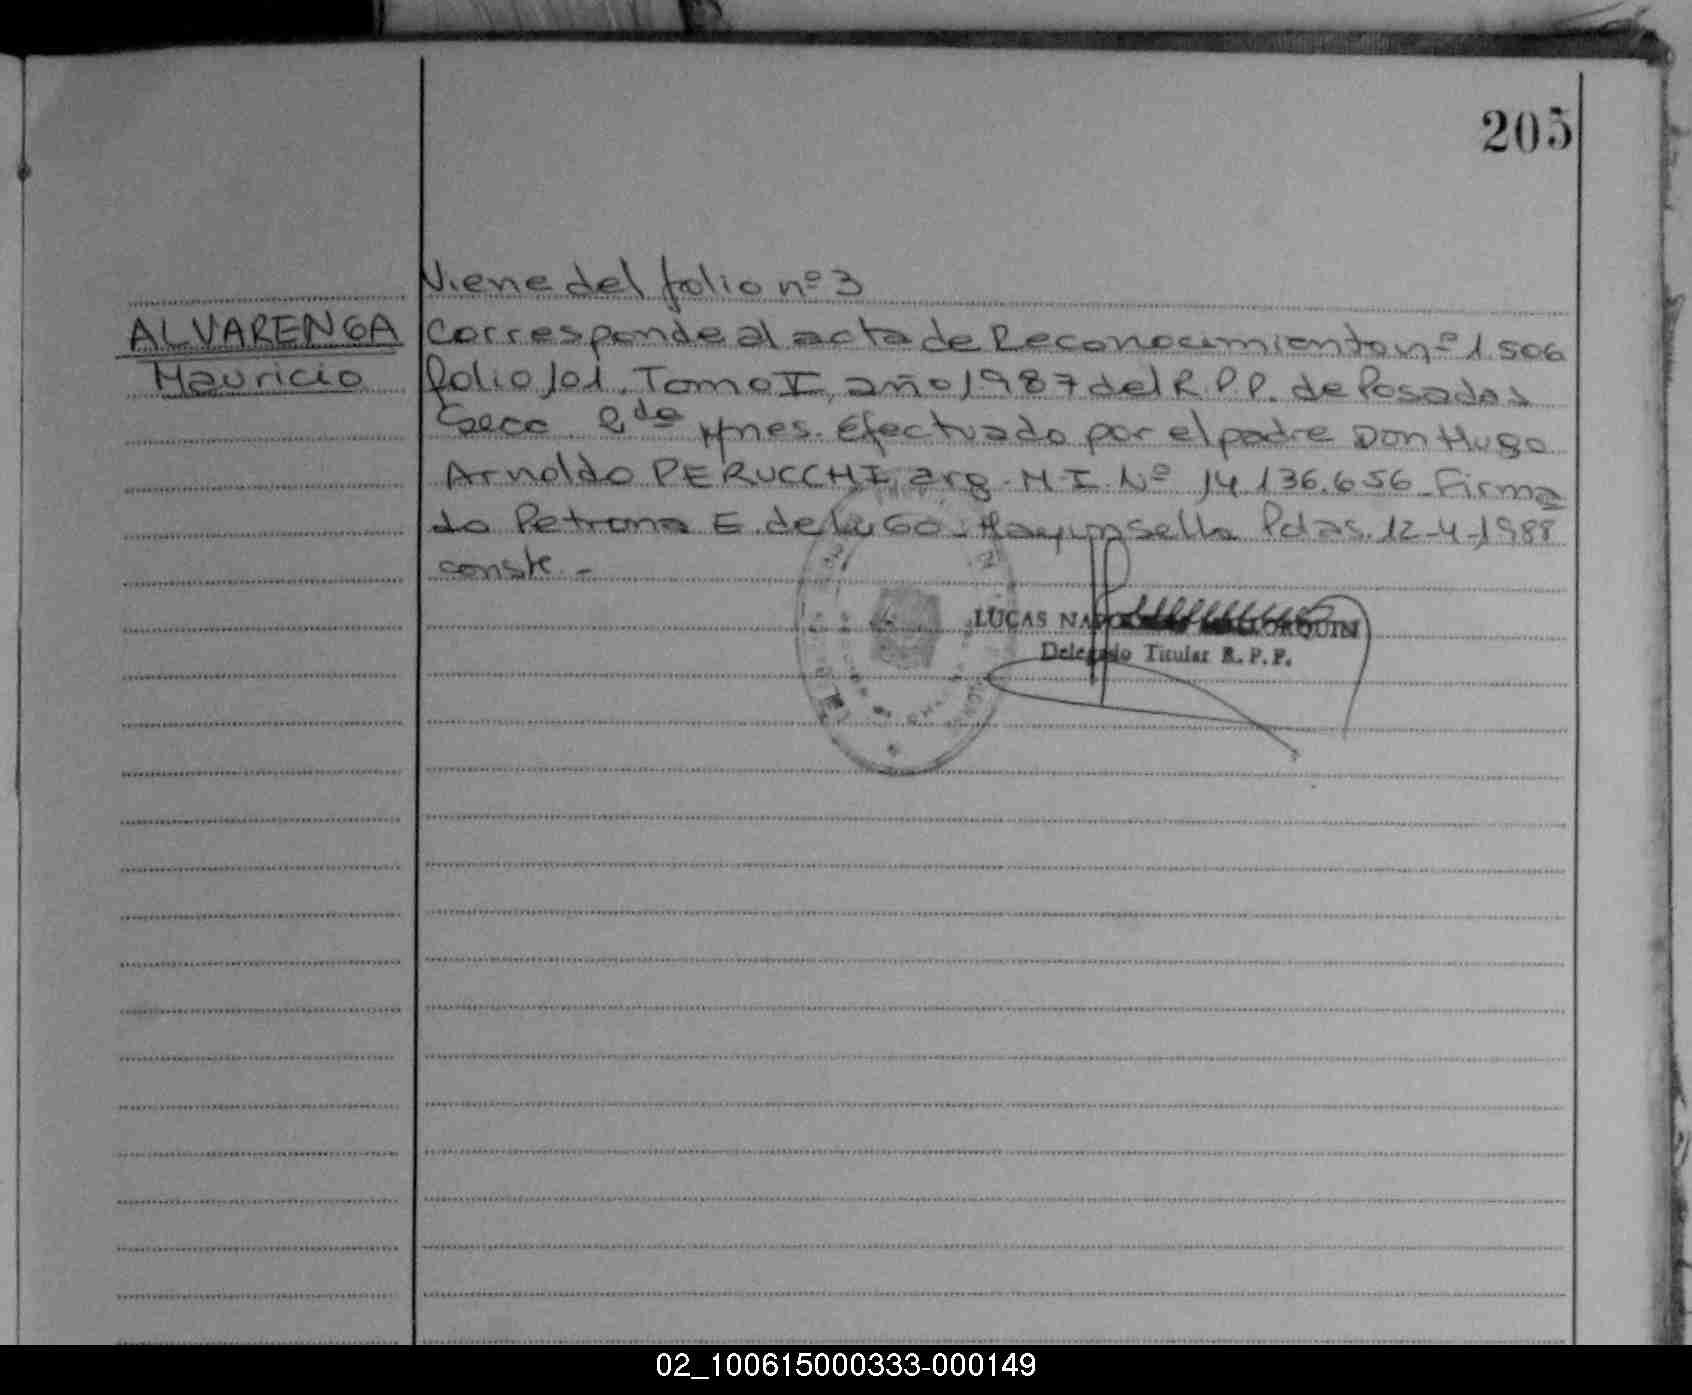 205
Viene del folio nº 3
ALVARENGA
Mauricio
Corresponde al acta de Reconocimiento nº 1.506
folio 101. Tomo I, año 1987 del R.P.P. de Posadas
Secc 2da Mnes. efectuado por el padre Don Hugo
Arnoldo PERUCCHI, arg. M.I. Nº 14.136.656. Firma
do Petrona E. de Hay un sello Pdas. 12-4-1988
conste. -
LUCAS
Delegado Titular R.P.P.
02_100615000333-000149